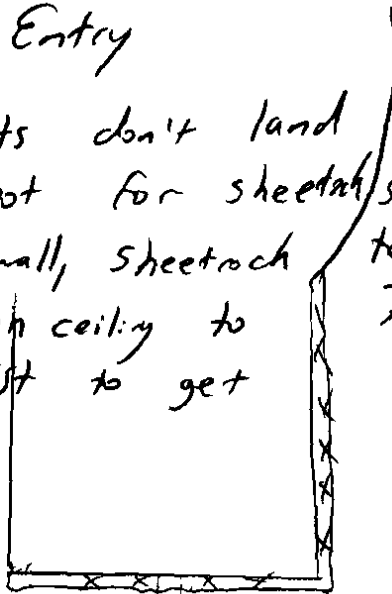 Entry
ts don't land
ot for sheetrock s
mall, sheetrock t
n ceiling to
st to get